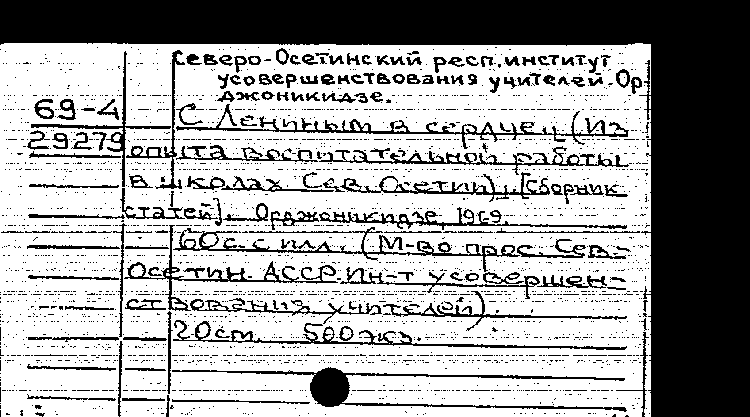 Северо-Осетинский респ. институт
усовершенствования учителей. Ор-
джоникидзе.
69-4
29279
С Лениным в сердце. (Из
опыта воспитательной работы
в школах Сев. Осетии). [Сборник
статей]. Орджоникидзе, 1969.
60 с. с илл. (М-во прос. Сев.-
Осетин. АССР. Ин-т усовершен-
ствования учителей).
20 см. 500 экз.